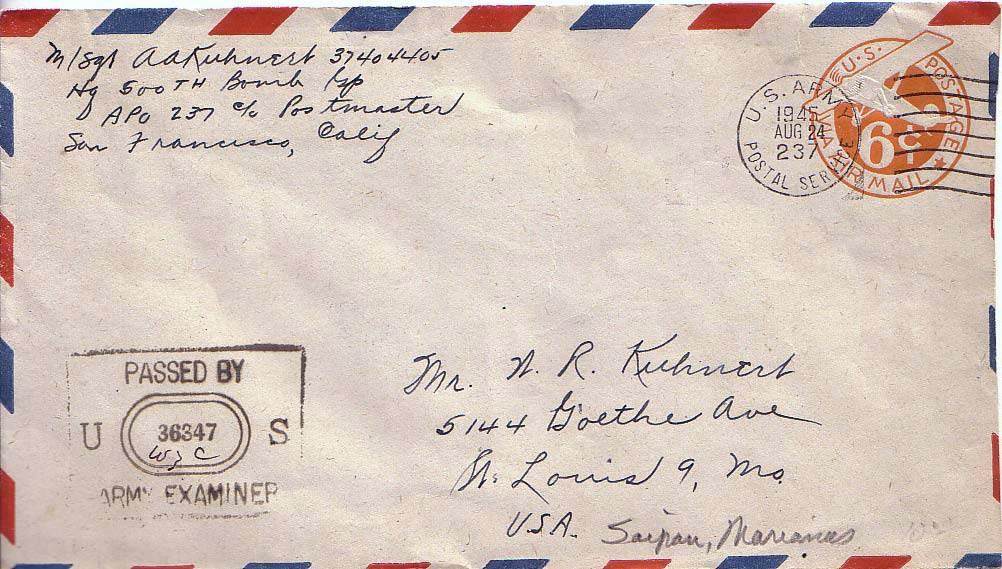 M/Sgt A A Kuhnert 37404405
Hq 500TH Bomb Gp
APO 237 c/o Postmaster
San Francisco, Calif
U.S. ARMY
1945
AUG 24
237
POSTAL SERVICE
U.S. POSTAGE
6¢
VIA AIR MAIL
PASSED BY
U 36347 S
WJC
ARMY EXAMINER
Mr. N. R. Kuhnert
5144 Goethe Ave
St. Louis 9, Mo.
U.S.A.
Saipan, Marianas